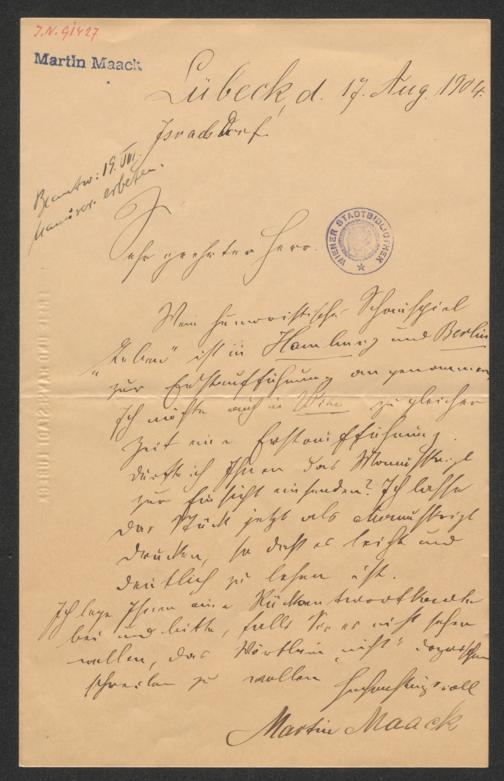 J.N. 91427
Martin Maack
Lübeck, d. 17. Aug. 1904.
Israelsdorf.
Beantw: 19. VIII.
Manuscr. erbeten.
Sehr geehrter Herr.
Mein humoristisches Schauspiel
"Leben" ist in Hamburg und Berlin
zur Erstaufführung angenommen
Ich möchte auch in Wien zu gleicher
Zeit eine Erstaufführung.
Dürfte ich Ihnen das Manuskript
zur Einsicht einsenden? Ich lasse
das Stück jetzt als Manuskript
drucken, so daß es leicht und
deutlich zu lesen ist.
Ich lege Ihnen eine Rückantwortkarte
bei und bitte, falls Sie es nicht sehen
wollen, das Wörtlein "nicht" dazwischen
schreiben zu wollen
Hochachtungsvoll
Martin Maack
WIENER STADTBIBLIOTHEK